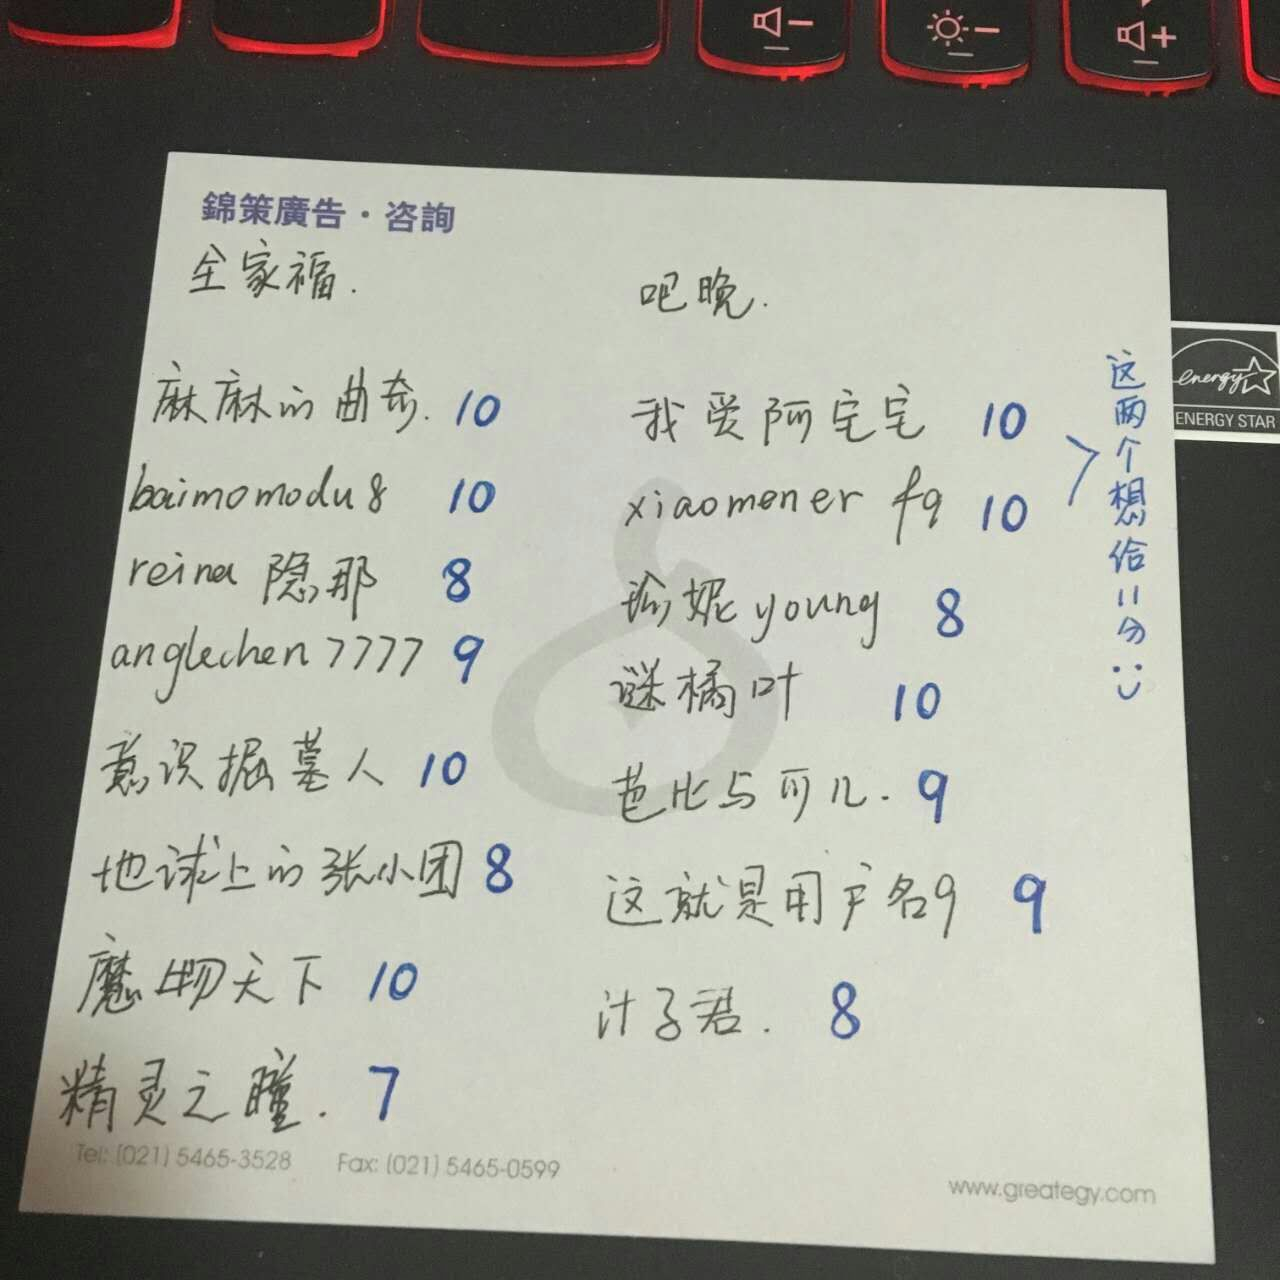 錦策廣告·咨詢
全家福.
麻麻的曲奇. 10
baimomodu8 10
reina 隐那 8
anglechen7777 9
意识掘墓人 10
地球上的张小团 8
魔物天下 10
精灵之瞳. 7
吧晚.
我爱阿宅宅 10
xiaomener fq 10
瑜妮young 8
谜橘叶 10
芭比与可儿. 9
这就是用户名9 9
汁子君. 8
这两个想给11分:)
Tel: (021) 5465-3528 Fax: (021) 5465-0599
www.greategy.com
energy
ENERGY STAR